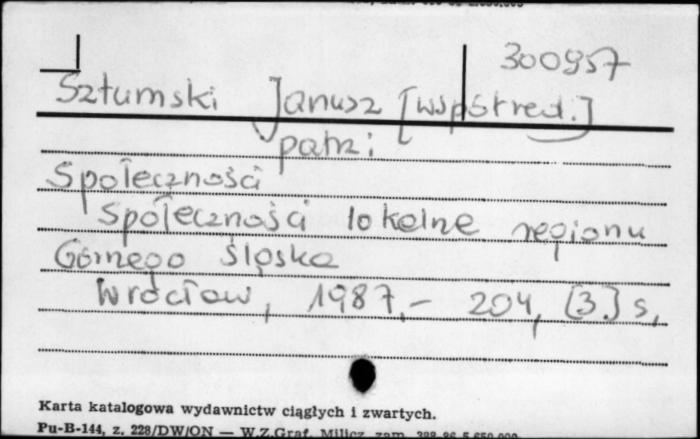 300957
Sztumski Janusz [współred.]
patrz:
Społeczności
Społeczności lokalne regionu
Górnego Śląska
Wrocław, 1987,- 204, [3.] s,
Karta katalogowa wydawnictw ciągłych i zwartych.
Pu-B-144, z. 228/DW/ON — W.Z.Graf. Milicz, zam.